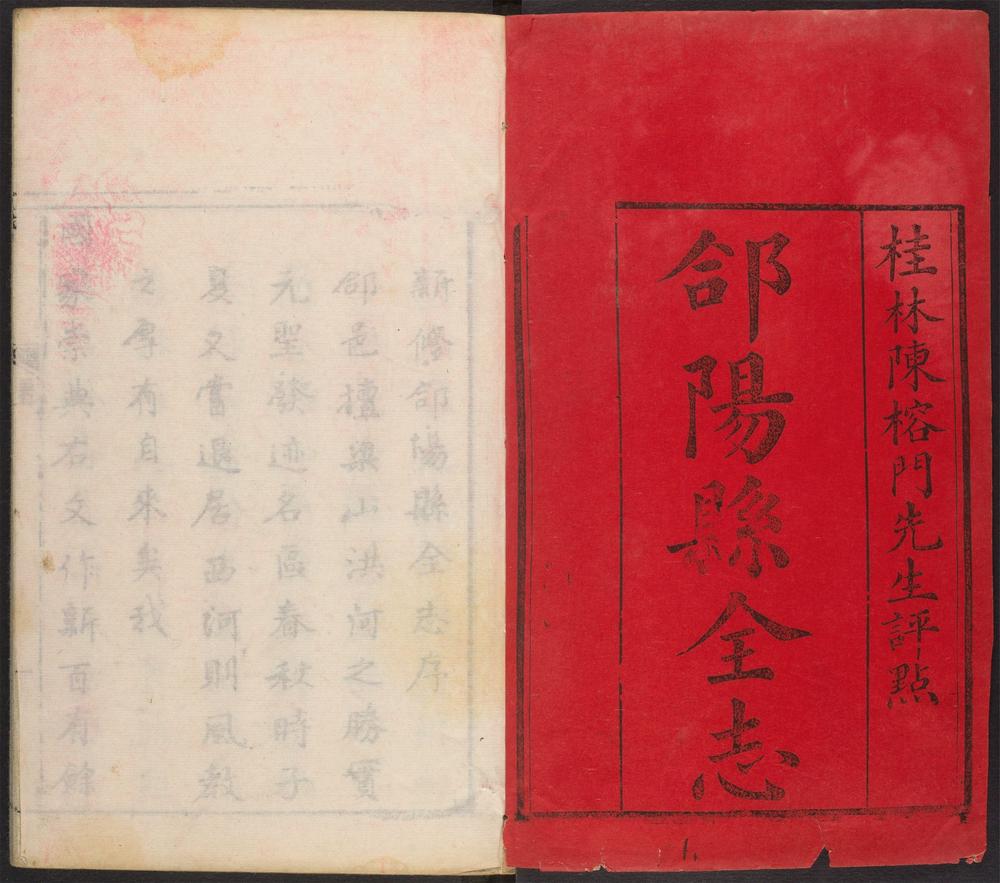 桂林陳榕門先生評點
郃陽縣全志
新修郃陽縣全志序
郃邑擅梁山洪河之勝實
元聖發迹名區春秋時子
夏又嘗退居西河則風教
之厚有自來矣我
國家崇典右文作新百有餘